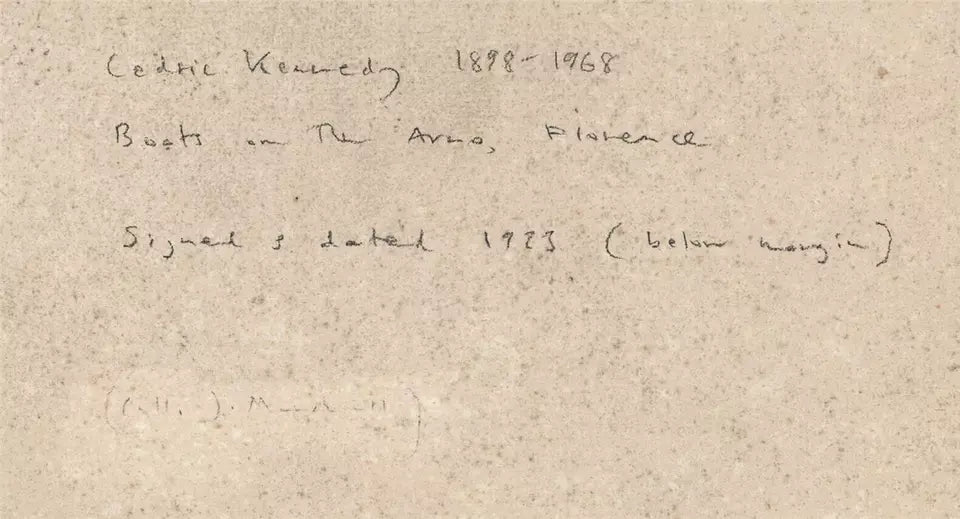 Cedric Kennedy 1898-1968
Boats on The Arno, Florence
Signed & dated 1923 (below margin)